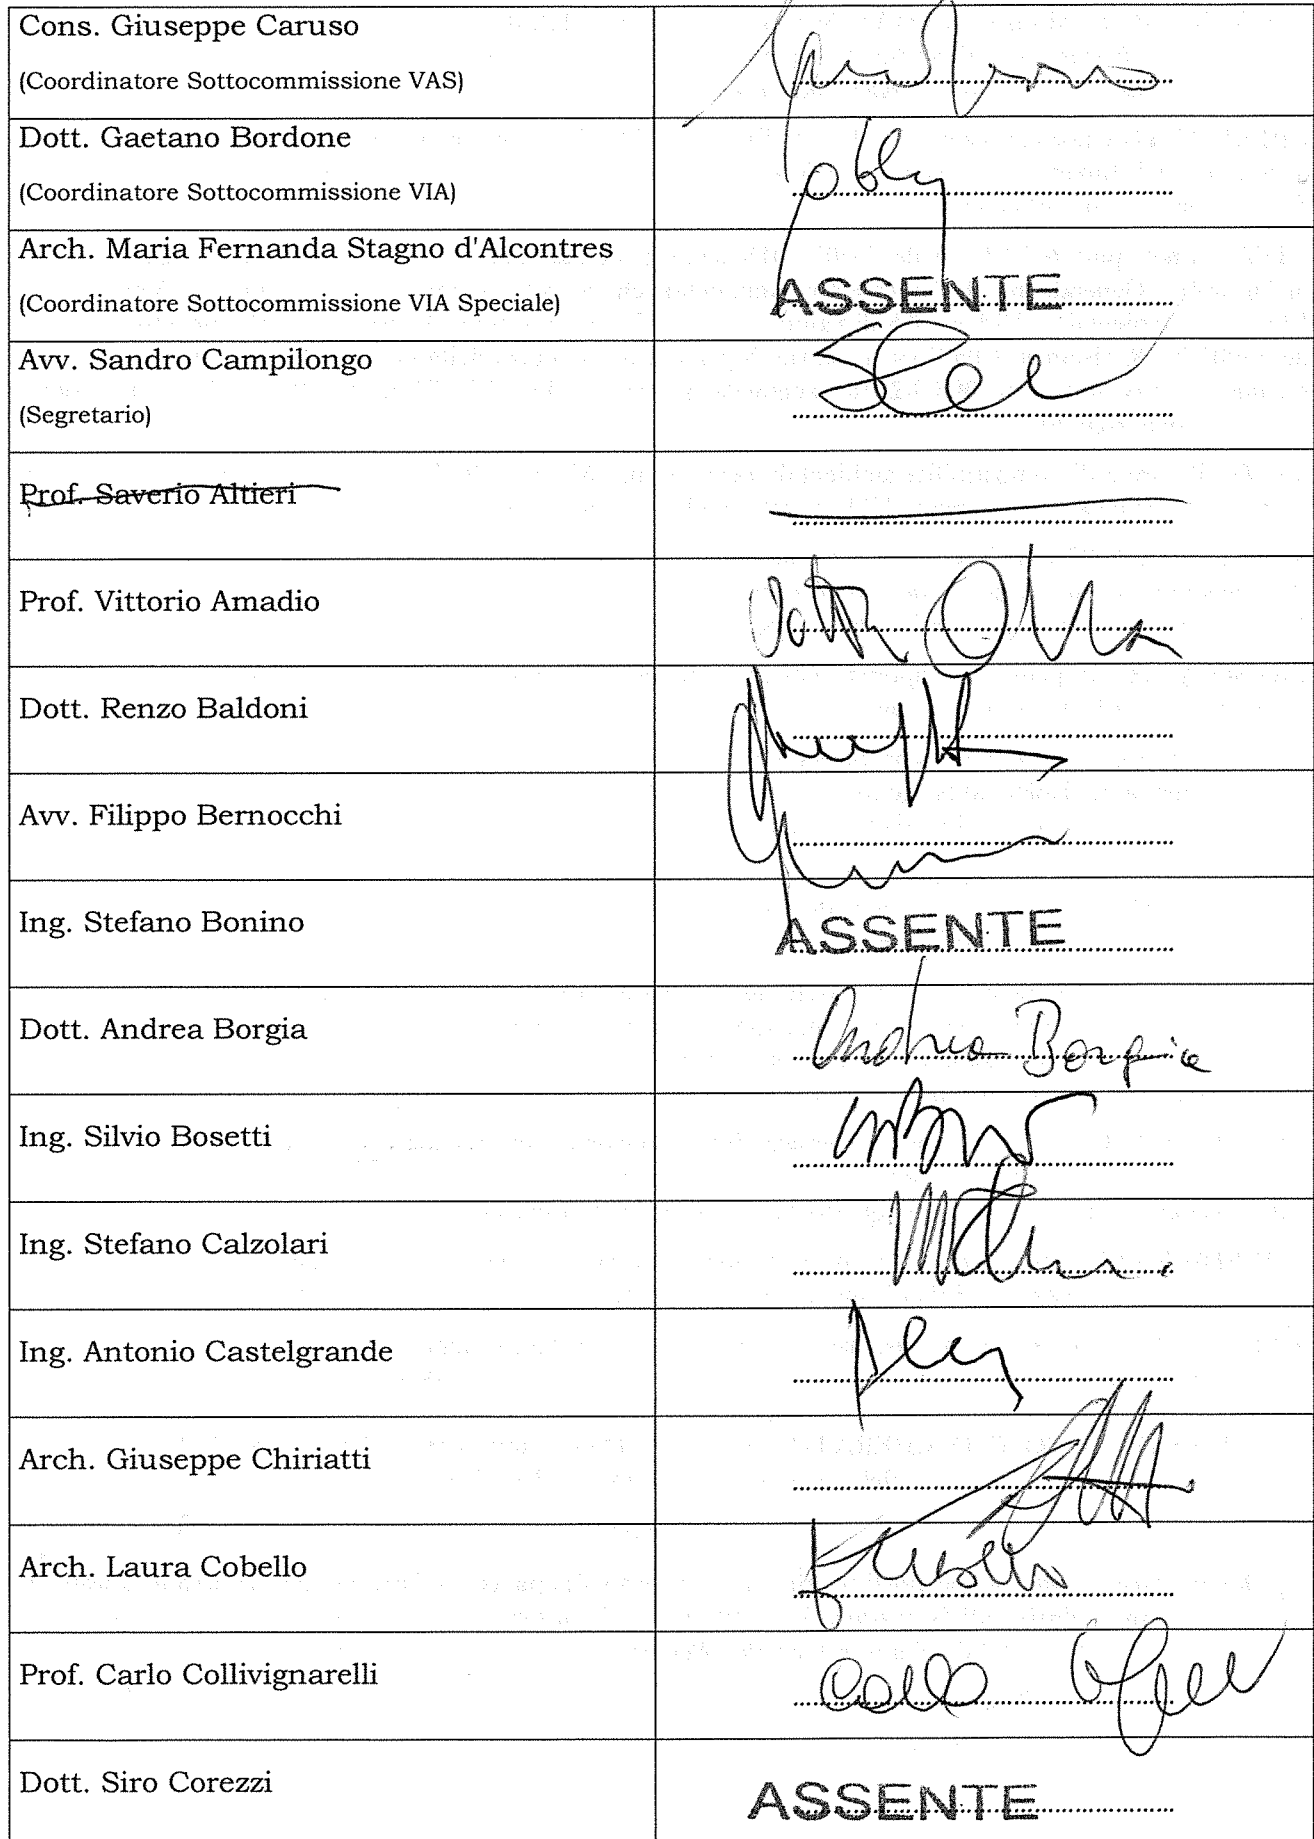 Cons. Giuseppe Caruso
(Coordinatore Sottocommissione VAS)
Dott. Gaetano Bordone
(Coordinatore Sottocommissione VIA)
Arch. Maria Fernanda Stagno d'Alcontres
(Coordinatore Sottocommissione VIA Speciale)
ASSENTE
Avv. Sandro Campilongo
(Segretario)
Prof. Saverio Altieri
Prof. Vittorio Amadio
Dott. Renzo Baldoni
Avv. Filippo Bernocchi
Ing. Stefano Bonino
ASSENTE
Dott. Andrea Borgia
Andrea Borgia
Ing. Silvio Bosetti
Ing. Stefano Calzolari
Ing. Antonio Castelgrande
Arch. Giuseppe Chiriatti
Arch. Laura Cobello
Prof. Carlo Collivignarelli
Dott. Siro Corezzi
ASSENTE